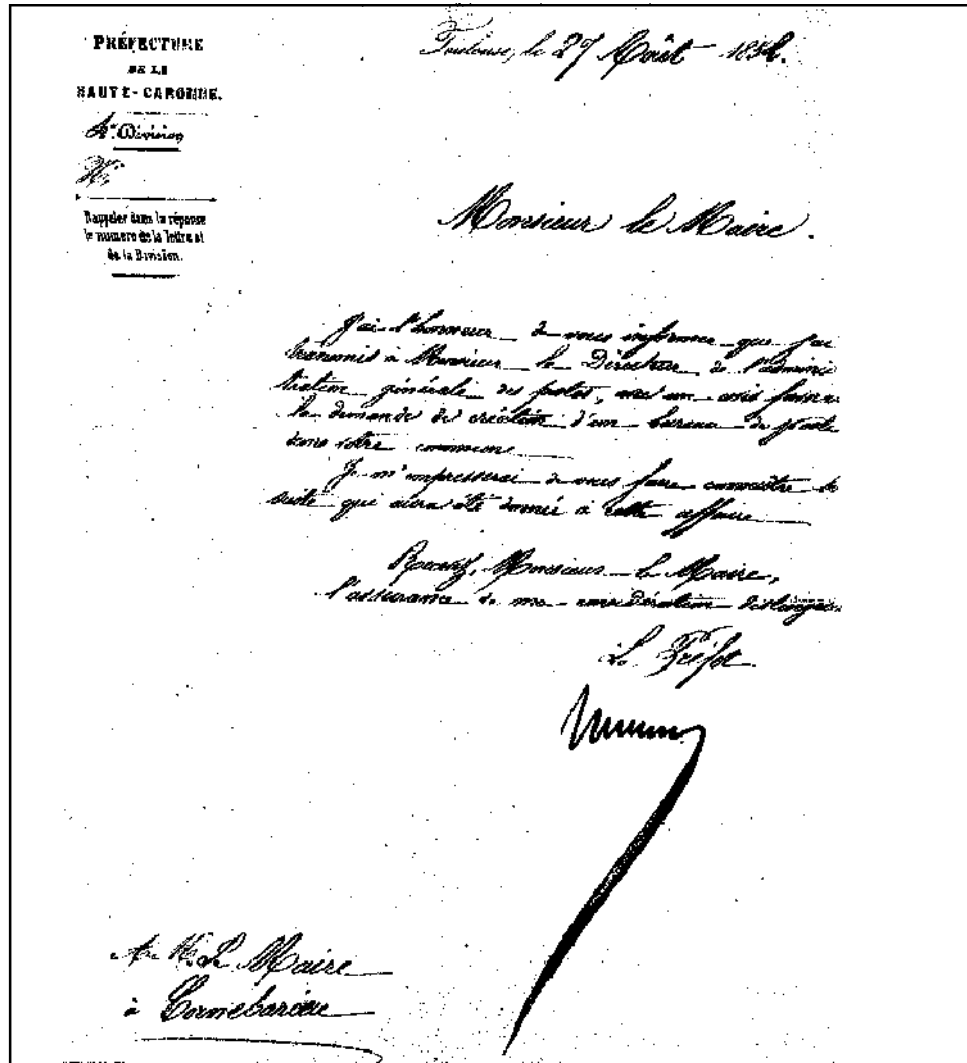 PRÉFECTURE
DE LA
HAUTE-GARONNE.
4e Division
N.
Rappeler dans la réponse
le numéro de la lettre et
de la Division.
Toulouse, le 27 Août
Monsieur le Maire.
J'ai l'honneur de vous informer que j'ai
transmis à Monsieur le Directeur de l'adminis
tration générale des postes, avec un avis favora
la demande de création d'un bureau de poste
dans votre commune
Je m'empresserai de vous faire connaître la
suite qui aura été donnée à cette affaire
Recevez, Monsieur le Maire,
l'assurance de ma considération distinguée
Le Préfet
A M. Le Maire
à Cornebarieu